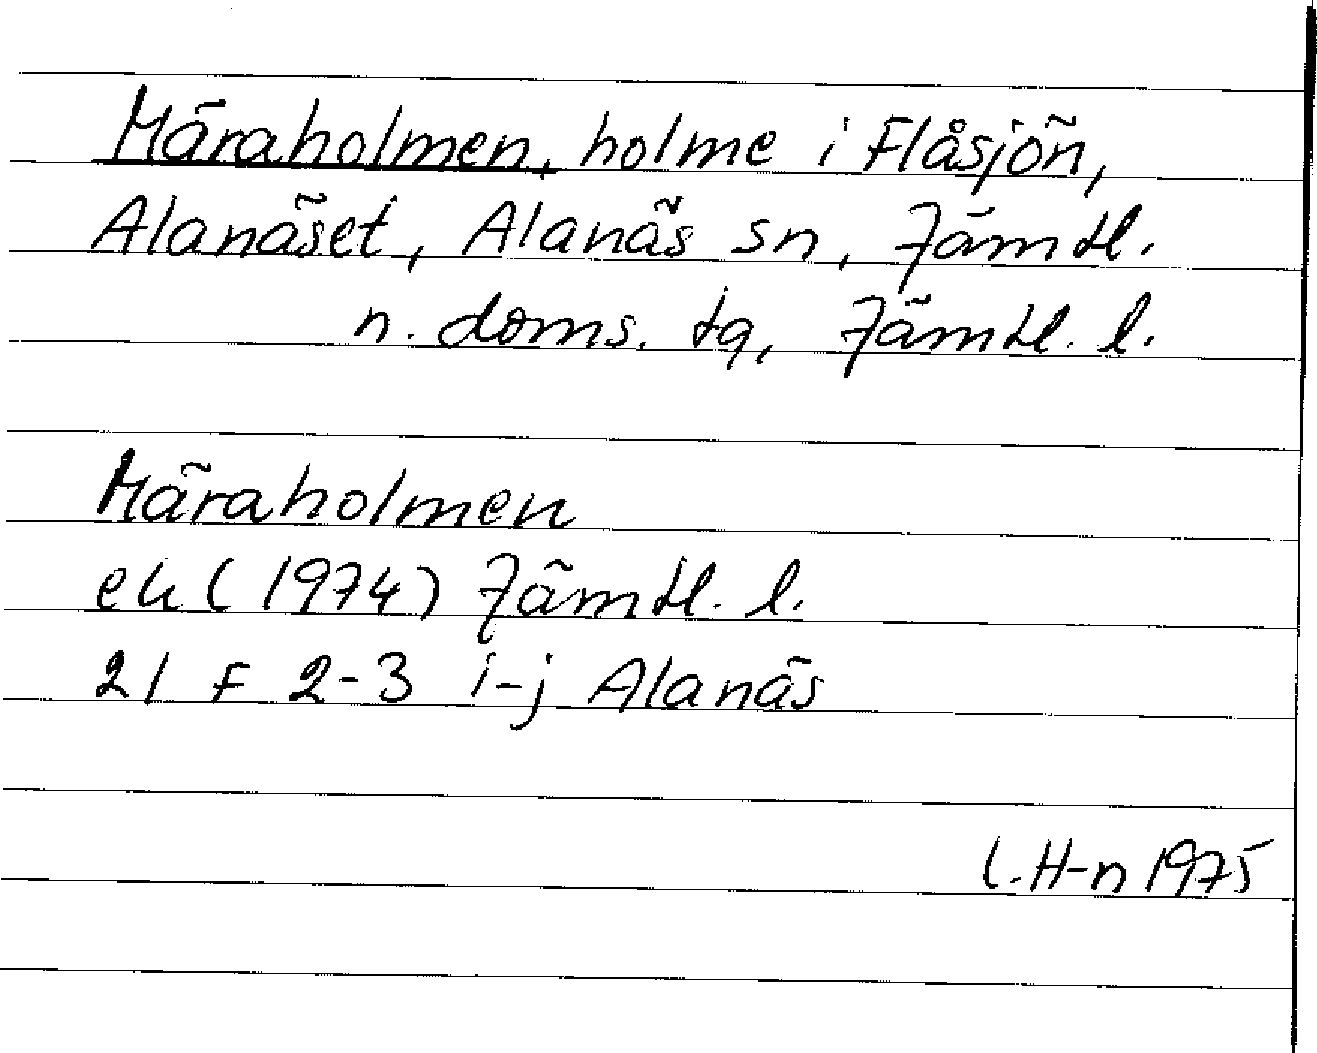 Märaholmen, holme i Flåsjön,
Alanäset, Alanäs sn, Jämtl.
n. doms. tg, Jämtl. l.
Märaholmen
ek (1974) Jämtl. l.
21 F 2-3 i-j Alanäs
l.H-n 1975